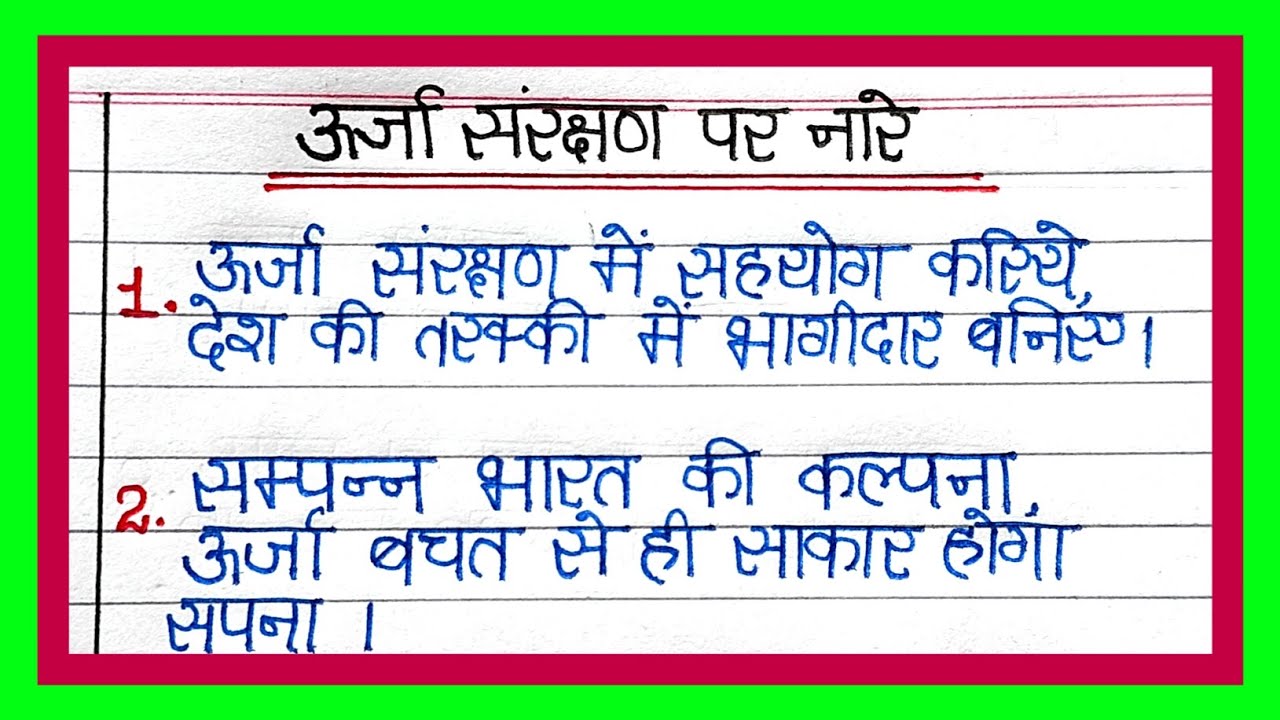 ऊर्जा संरक्षण पर नारे
1. ऊर्जा संरक्षण में सहयोग करिये,
देश की तरक्की में भागीदार बनिए।
2. सम्पन्न भारत की कल्पना,
ऊर्जा बचत से ही साकार होगा
सपना ।